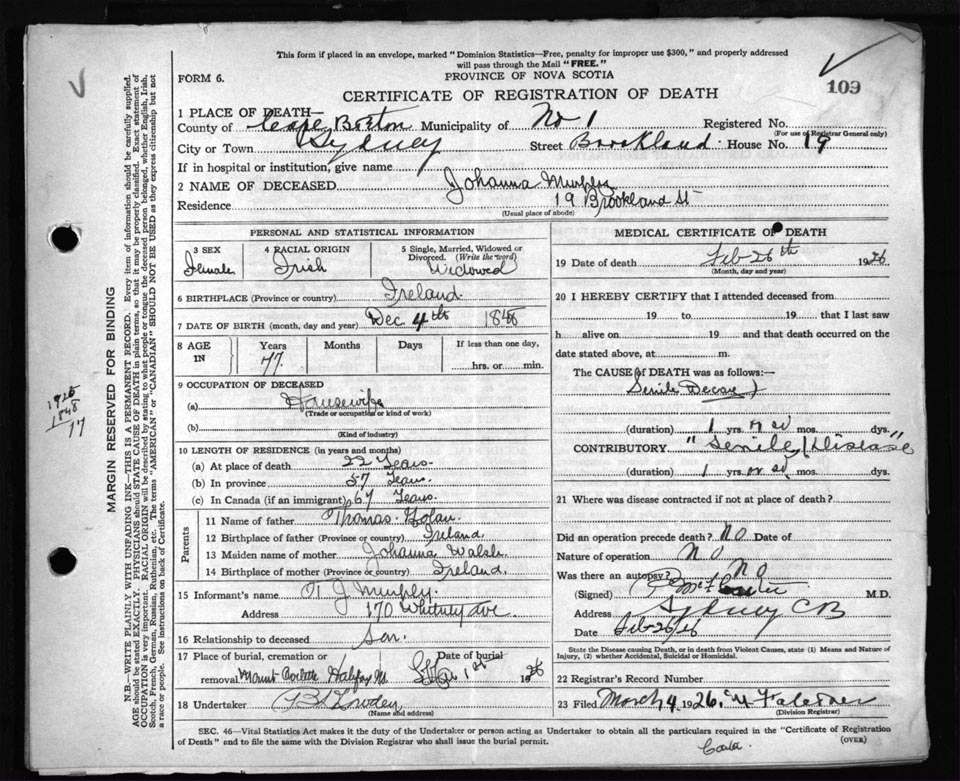 This form if placed in an envelope, marked "Dominion Statistics—Free, penalty for improper use $300," and properly addressed
will pass through the Mail "FREE."
FORM 6.
PROVINCE OF NOVA SCOTIA
109
CERTIFICATE OF REGISTRATION OF DEATH
1 PLACE OF DEATH—
County of Cape Breton Municipality of No 1 Registered No.
(For use of Registrar General only)
City or Town Sydney Street Brookland House No. 19
If in hospital or institution, give name
2 NAME OF DECEASED Johanna Murphy
Residence 19 Brookland St
(Usual place of abode)
PERSONAL AND STATISTICAL INFORMATION
3 SEX Female
4 RACIAL ORIGIN Irish
5 Single, Married, Widowed or Divorced. (Write the word) Widowed
6 BIRTHPLACE (Province or country) Ireland
7 DATE OF BIRTH (month, day and year) Dec 4th 1848
8 AGE IN Years 77 Months Days If less than one day, hrs. or min.
9 OCCUPATION OF DECEASED
(a) Housewife
(Trade or occupation or kind of work)
(b)
(Kind of industry)
10 LENGTH OF RESIDENCE (in years and months)
(a) At place of death 22 Years
(b) In province 57 Years.
(c) In Canada (if an immigrant) 67 Years
Parents
11 Name of father Thomas
12 Birthplace of father (Province or country) Ireland
13 Maiden name of mother Johanna Walsh
14 Birthplace of mother (Province or country) Ireland.
15 Informant's name J Murphy
Address 170 Whitney Ave
16 Relationship to deceased son.
17 Place of burial, cremation or removal Mount Halifax Date of burial 1st 1926
18 Undertaker
(Name and address)
MEDICAL CERTIFICATE OF DEATH
19 Date of death Feb 26th 1926
(Month, day and year)
20 I HEREBY CERTIFY that I attended deceased from
19 to 19 that I last saw
h alive on 19 and that death occurred on
date stated above, at m.
The CAUSE of DEATH was as follows:—
Senile Decay
(duration) 1 yrs. mos. dys.
CONTRIBUTORY "Senile Disease"
(duration) 1 yrs. mos. dys.
21 Where was disease contracted if not at place of death?
Did an operation precede death? NO Date of
Nature of operation NO
Was there an autopsy? NO
(Signed) M.D.
Address Sydney CB
Date Feb 26/26
State the Disease causing Death, or in death from Violent Causes, state (1) Means and Nature of
Injury, (2) whether Accidental, Suicidal or Homicidal.
22 Registrar's Record Number
23 Filed March 4 1926.
(Division Registrar)
SEC. 46—Vital Statistics Act makes it the duty of the Undertaker or person acting as Undertaker to obtain all the particulars required in the "Certificate of Registration
of Death" and to file the same with the Division Registrar who shall issue the burial permit.
(OVER)
MARGIN RESERVED FOR BINDING
N.B.—WRITE PLAINLY WITH UNFADING INK—THIS IS A PERMANENT RECORD. Every item of information should be carefully supplied.
AGE should be stated EXACTLY. PHYSICIANS should STATE CAUSE OF DEATH in plain terms, so that it may be properly classified. Exact statement of
OCCUPATION is very important. RACIAL ORIGIN will be described by stating to what people or tongue the deceased person belonged, whether English, Irish,
Scotch, French, German, Russian, Ruthenian, etc. The terms "AMERICAN" or "CANADIAN" SHOULD NOT BE USED as they express citizenship but not
a race or people. See instructions on back of Certificate.
1925
1848
77